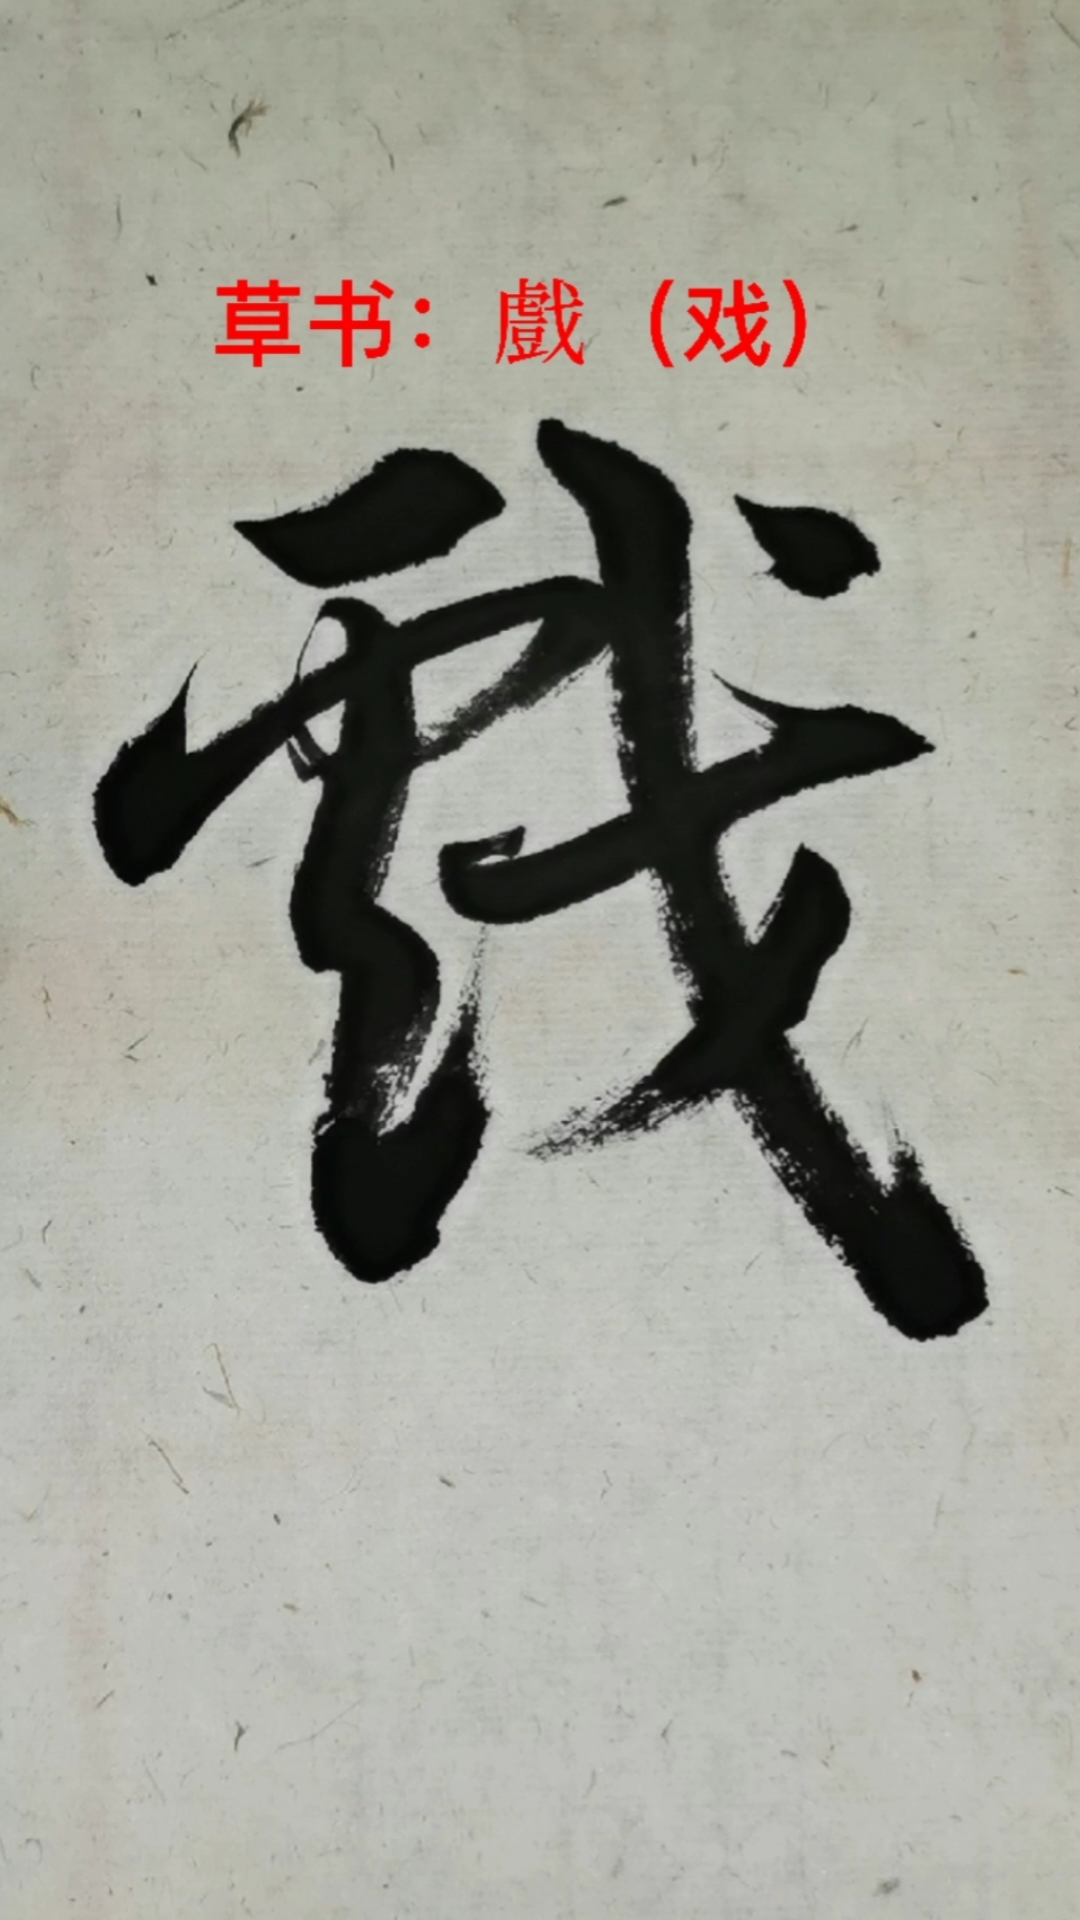 草书：戲（戏）
戲